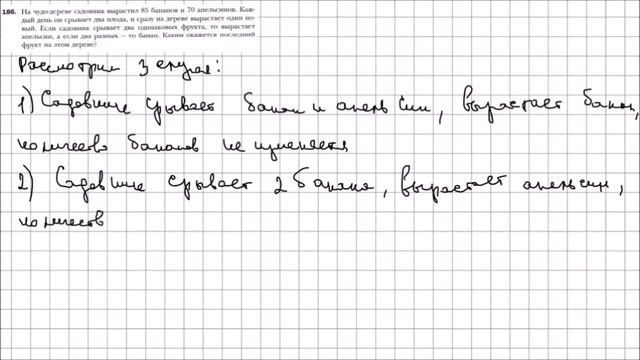 186. На чудо-дереве садовник вырастил 85 бананов и 70 апельсинов. Каж-
дый день он срывает два плода, и сразу на дереве вырастает один но-
вый. Если садовник срывает два одинаковых фрукта, то вырастает
апельсин, а если два разных – то банан. Каким окажется последний
фрукт на этом дереве?
Рассмотрим 3 случая:
1) Садовник срывает банан и апельсин, вырастает банан,
количество бананов не изменяется
2) Садовник срывает 2 банана, вырастает апельсин,
количеств